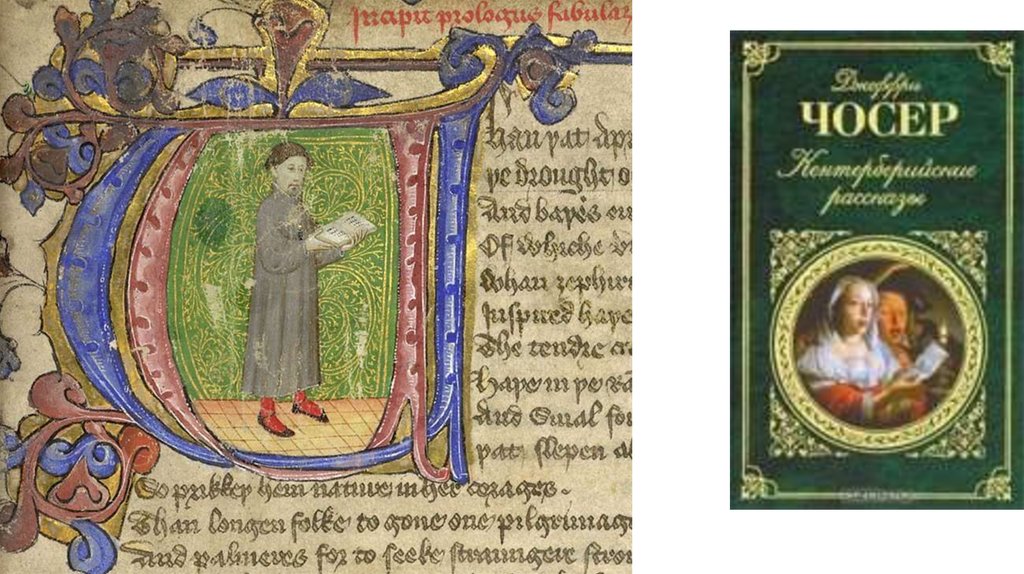 Incipit prologus fabular
Whan þat Apr
Þe drought o
And baþed eu
Of whiche v
Whan zephir
Inspired haþe
The tendre cr
Haþe in þe Ra
And Smal fo
Þat slepen al
So prikkeþ hem nature in her corages.
Than longen folke to gone one pilgrimag
And palmeres for to seeke straungere stron
Джеффри
ЧОСЕР
Кентерберийские
рассказы